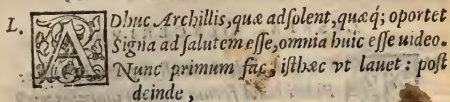 L. ADhuc Archillis, quæ adsolent, quæq́; oportet
Signia ad salutem esse, omnia huic esse uideo.
Nunc primum fac, isthæc vt lauet: post
deinde,